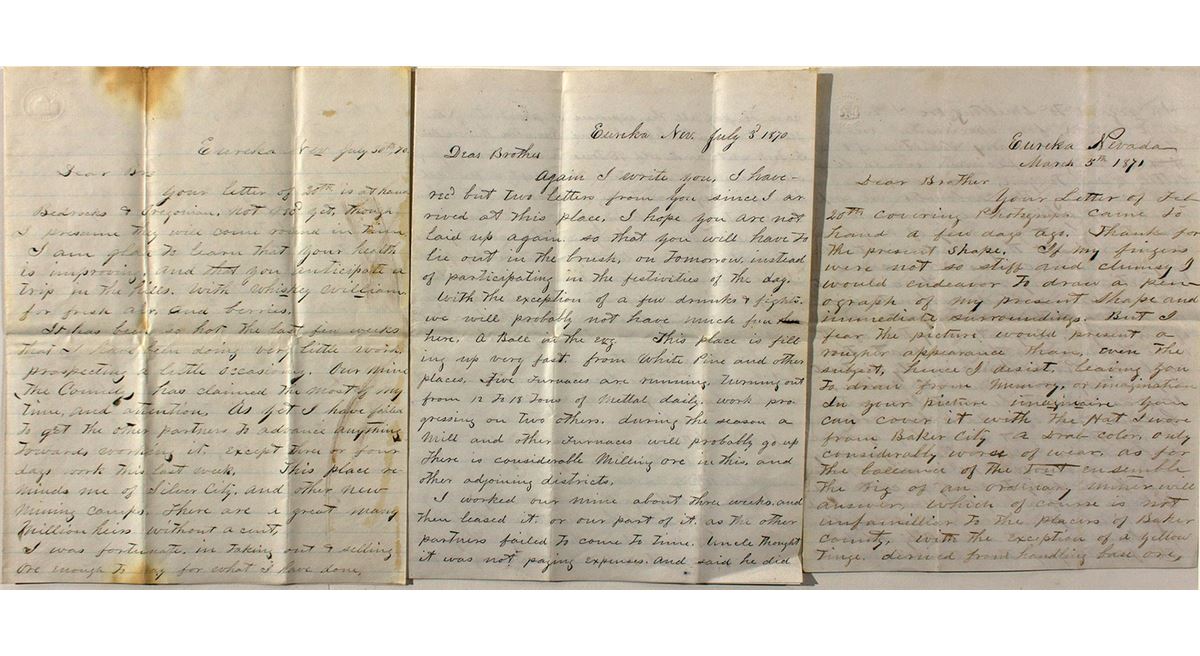 Eureka Nev July 30th, 70
Dear Bro
Your letter of 20th is at hand
Bedrocks & Oregonian, not rec'd yet, though
I presume they will come round in time
I am glad to learn that your health
is improving, and that you anticipate a
trip in the hills, with whiskey william
for fresh air, and berries.
It has been so hot the last few weeks
that I have been doing very little work,
prospecting a little occasionly. Our mine
The has claimed the most of my
time, and attention. As yet I have failed
to get the other partners to advance anything
towards working it, except two or four
days work this last week. This place re-
minds me of Silver City, and other new
mining camps. There are a great many
Millionheirs without a cent,
I was fortunate, in taking out & selling
ore enough to pay for what I have done,
Eureka Nev. July 3d 1870
Dear Brother
Again I write you, I have
rec'd but two letters from you since I ar
rived at this place, I hope you are not
laid up again so that you will have to
lie out in the brush, on tomorrow, instead
of participating in the festivities of the day.
With the exception of a few drunks & fights.
we will probably not have much fun
here, A Ball in the evg This place is fill
ing up very fast, from White Pine and other
places, Five Furnaces are running, turning out
from 12 to 18 Tons of Mettal daily, work pro
gressing on two others, during the season a
Mill and other Furnaces will probably go up
There is considerable Milling ore in this, and
other adjoining districts,
I worked our mine about three weeks, and
then leased it, or our part of it, as the other
partners failed to come to time, Uncle thought
it was not paying expenses, and said he did
Eureka Nevada
March 5th 1871
Dear Brother
Your Letter of Feb
20th covering came to
hand a few days ago, Thanks for
the present Shape, If my fingers
were not so stiff and clumsy I
would endeavor to draw a pen-
ograph of my present Shape and
immediate surroundings. But I
fear the picture would present a
rougher appearance than, even the
subject, hence I desist, leaving you
to draw from Memory, or imagination
In your picture imaginaire you
can cover it with the Hat I wore
from Baker City - a Drab color, only
considerably worse of wear, as for
the ballance of the tout ensemble
the rig of an ordinary miner will
answer, which of course is not
unfamilliar to the placers of Baker
county, with the exception of a yellow
tinge, derived from handling base ore,